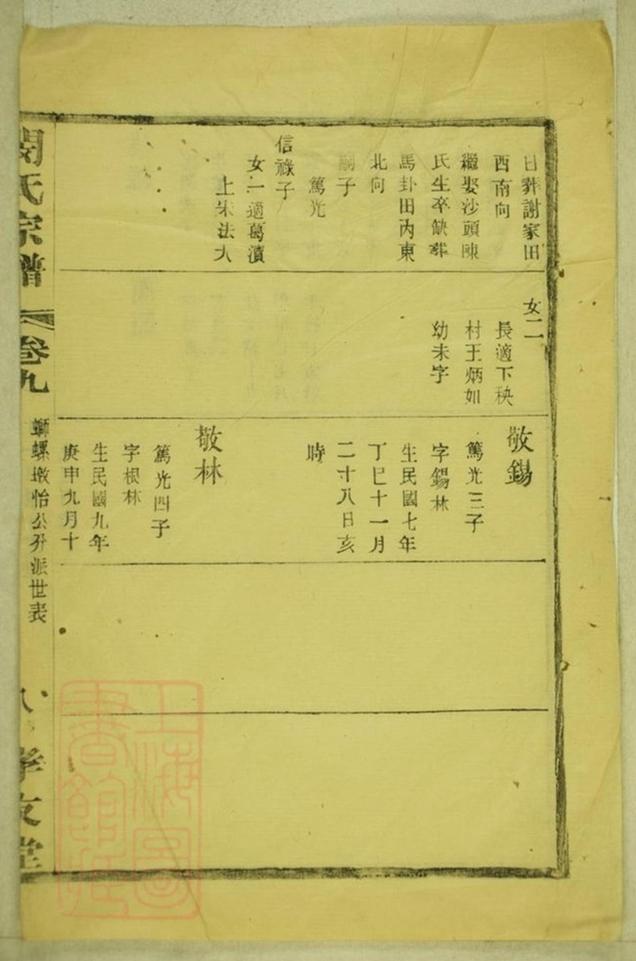 日葬謝家田
西南向
繼娶沙頭陳
氏生卒缺葬
馬卦田內東
北向
嗣子
篤光
信祿子
女一適葛瀆
上朱法大
女二
長適下秧
村王炳如
幼未字
敬錫
篤光三子
字錫林
生民國七年
丁巳十一月
二十八日亥
時
敬林
篤光四子
字根林
生民國九年
庚申九月十
閔氏宗譜
卷九
螄螺墩怡公分派世表
八
孝友堂
上海圖
書館藏